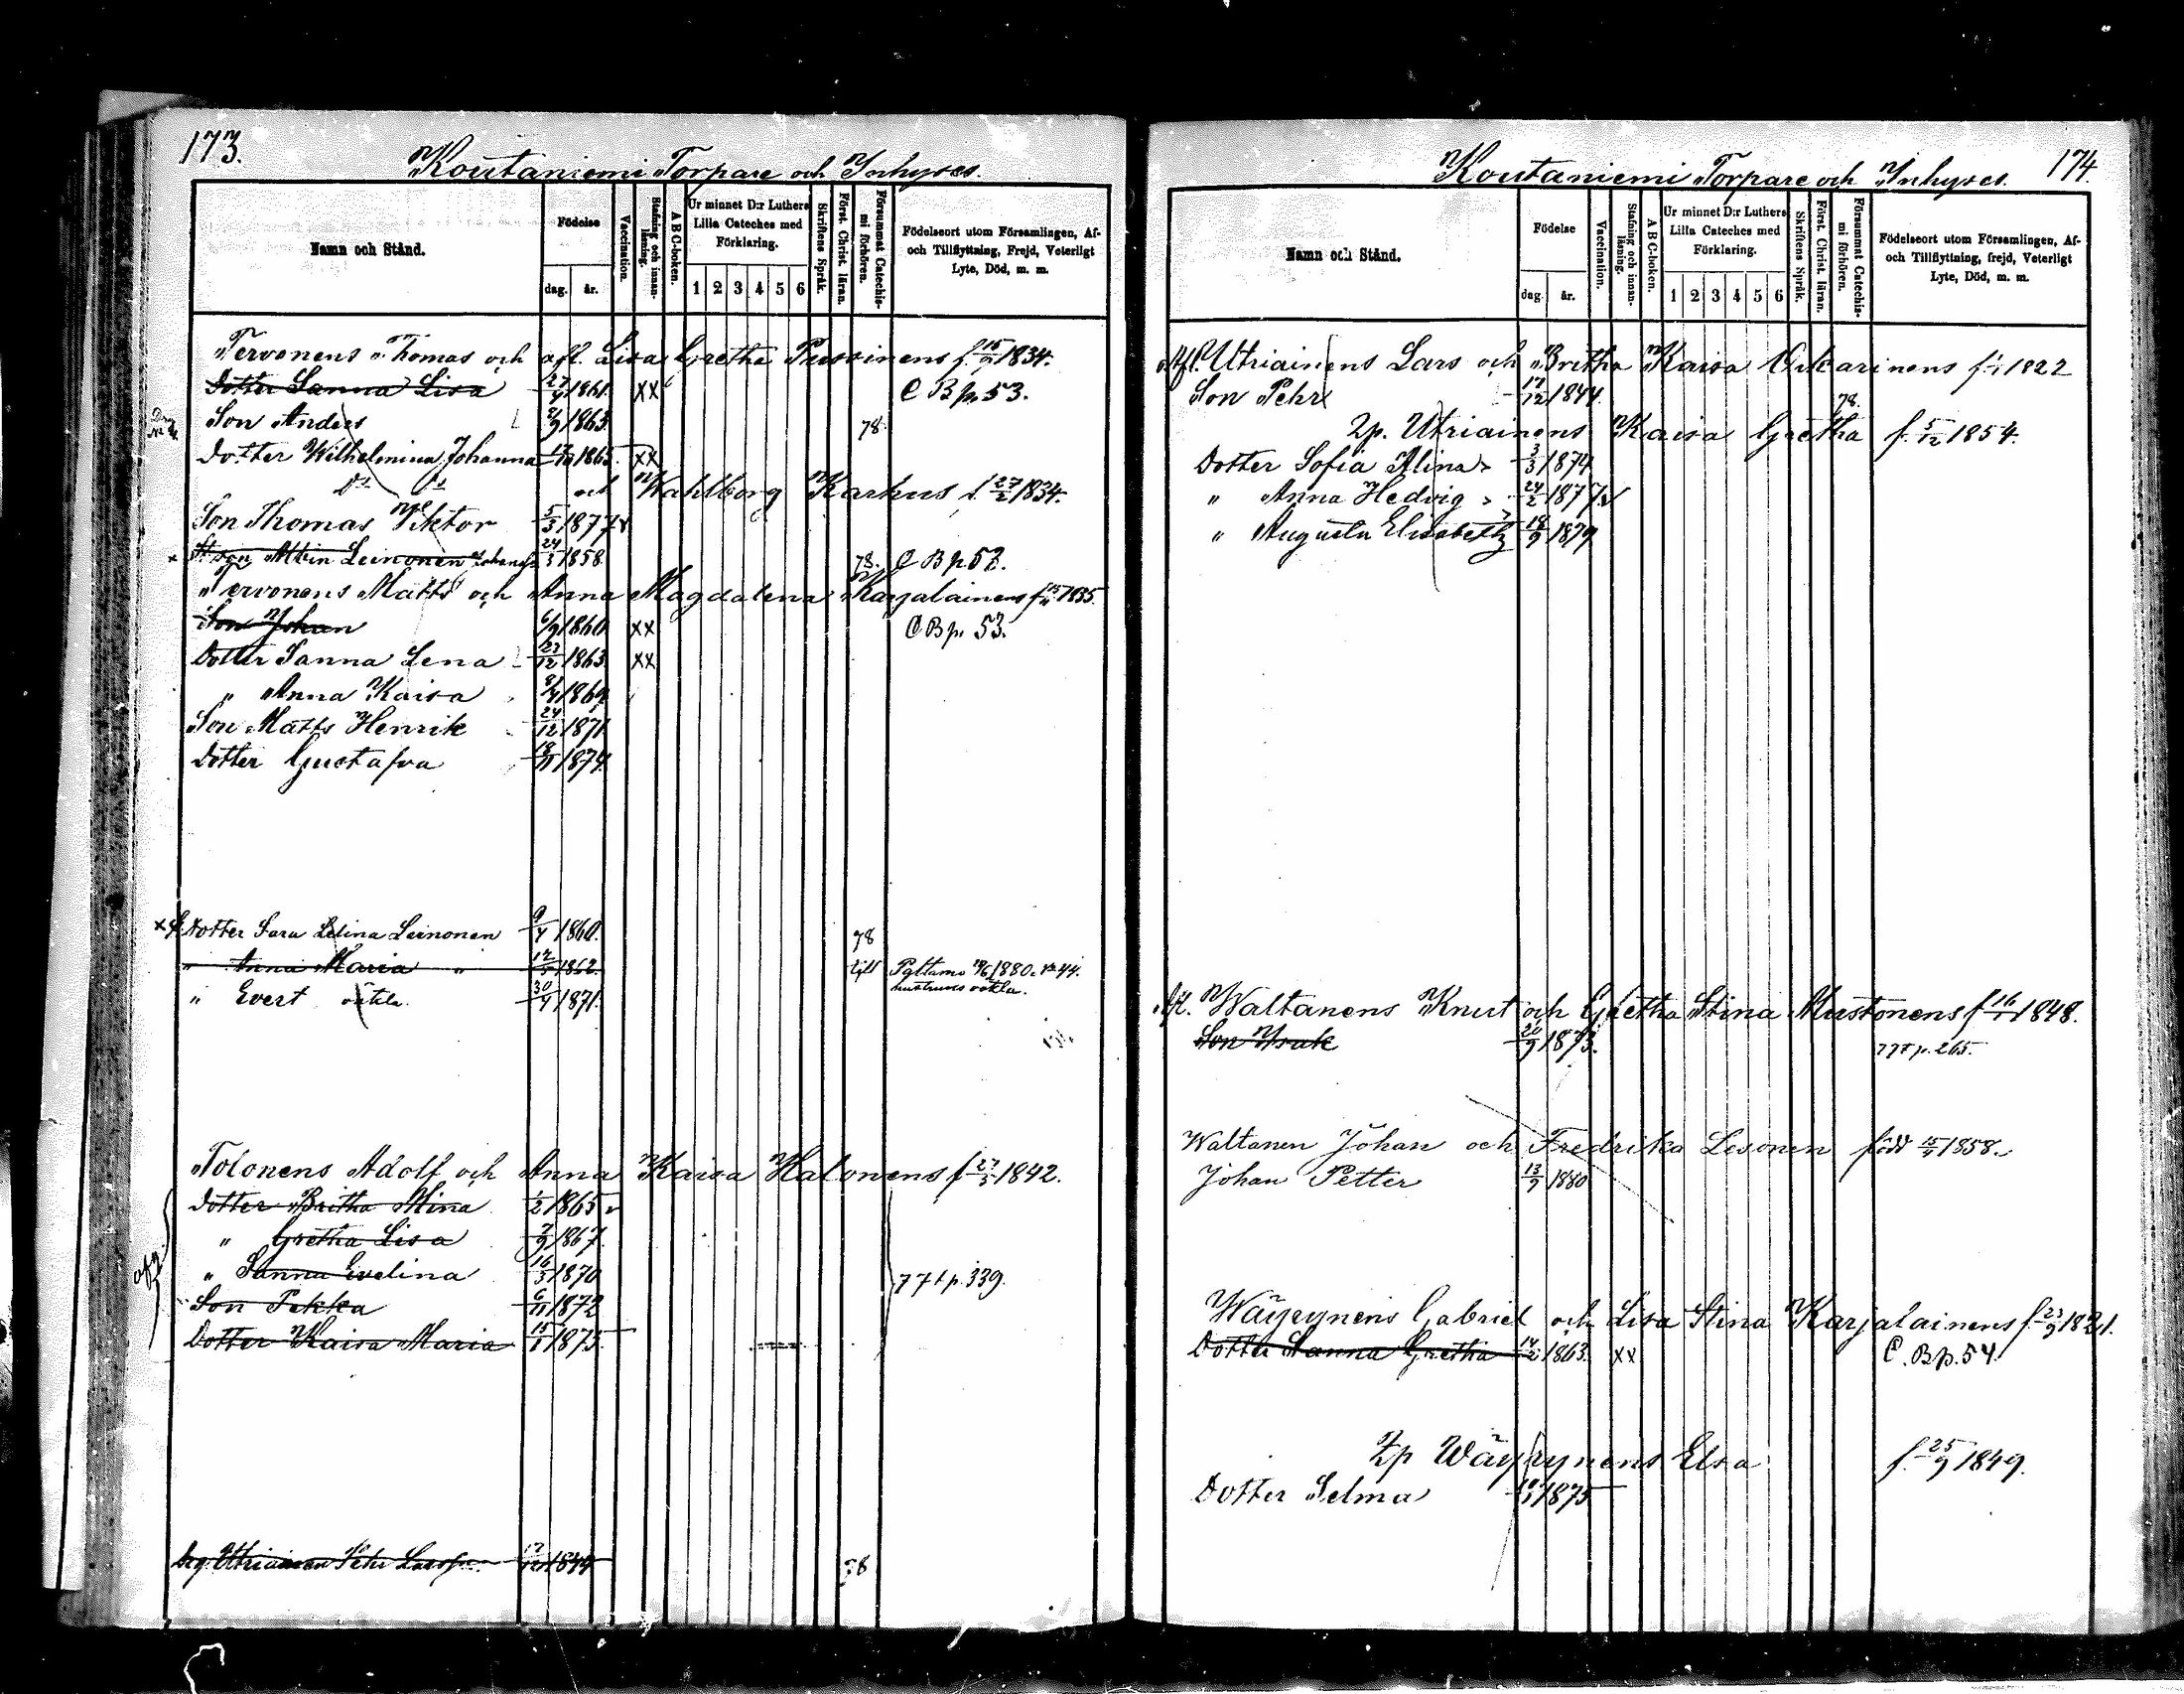 173.
Koutaniemi Torpare och Inhyses.
Namn och Stånd.
Födelse
dag. år.
Vaccination.
Stafning och innanläsning.
A B C-boken.
Ur minnet D:r Luthers Lilla Cateches med Förklaring.
1 2 3 4 5 6
Skriftens Språk.
Först. Christ. läran.
Försummat Catechismi förhören.
Födelseort utom Församlingen, Af- och Tillflyttning, Frejd, Veterligt Lyte, Död, m. m.
Tervonens Thomas och afl. Lisa Gretha Pussinens f. 15/9 1834.
Dotter Sanna Lisa 27/9 1861. XX C B p. 53.
Son Anders 2/9 1863. 78
Dotter Wilhelmina Johanna 17/10 1865. XX
och Wahlborg Karhus f. 27/2 1834.
Son Thomas Viktor 5/3 1877
x St son Albin Leinonen 24/3 1858. 78. C B p. 52.
Tervonens Matts och Anna Magdalena Karjalainens f. 1835.
Son Johan 6/9 1860. XX C B p. 53.
Dotter Sanna Lena 23/12 1863 XX
" Anna Kaisa 8/4 1869
Son Matts Henrik 24/12 1871
Dotter Gustafva 18/11 1874.
Dotter Sara Leinonen 9/4 1860. 78
" Anna Maria " 1862. Paltamo 1880. № 44.
" Evert 30/4 1871.
Tolonens Adolf och Anna Kaisa Halonens f. 27/5 1842.
Dotter Britha Mina 1/2 1865
" Gretha Lisa 7/9 1867.
" Sanna Evelina 16/3 1870
77 p. 339.
Son Pekka 6/11 1872
Dotter Kaisa Maria 15/1 1875.
Utriainen Pehr 17/12 1844 78
174.
Koutaniemi Torpare och Inhyses.
Namn och Stånd.
Födelse
dag. år.
Vaccination.
Stafning och innanläsning.
A B C-boken.
Ur minnet D:r Luthers Lilla Cateches med Förklaring.
1 2 3 4 5 6
Skriftens Språk.
Först. Christ. läran.
Försummat Catechismi förhören.
Födelseort utom Församlingen, Af- och Tillflyttning, frejd, Veterligt Lyte, Död, m. m.
Afl. Utriainens Lars och Britha Kaisa Oikarinens f. 1822
Son Pehr 17/12 1844. 78.
Utriainens Kaisa Gretha f. 5/12 1854.
Dotter Sofia Alina 3/3 1874
" Anna Hedvig 24/2 1877
" Augusta Elisabeth 18/9 1879
Afl. Waltanens Knut och Gretha Stina Mustonens f. 16/1 1848.
Son Isak 20/9 1873. p. 265.
Waltanen Johan och Fredrika Lesonen född 1858.
Johan Petter 13/9 1880
Wäyrynens Gabriel och Lisa Stina Karjalainens f. 23/9 1821.
Dotter Sanna Gretha 14/2 1863. XX C. B p. 54.
Wäyrynens Elsa f. 25/9 1849.
Dotter Selma 1875